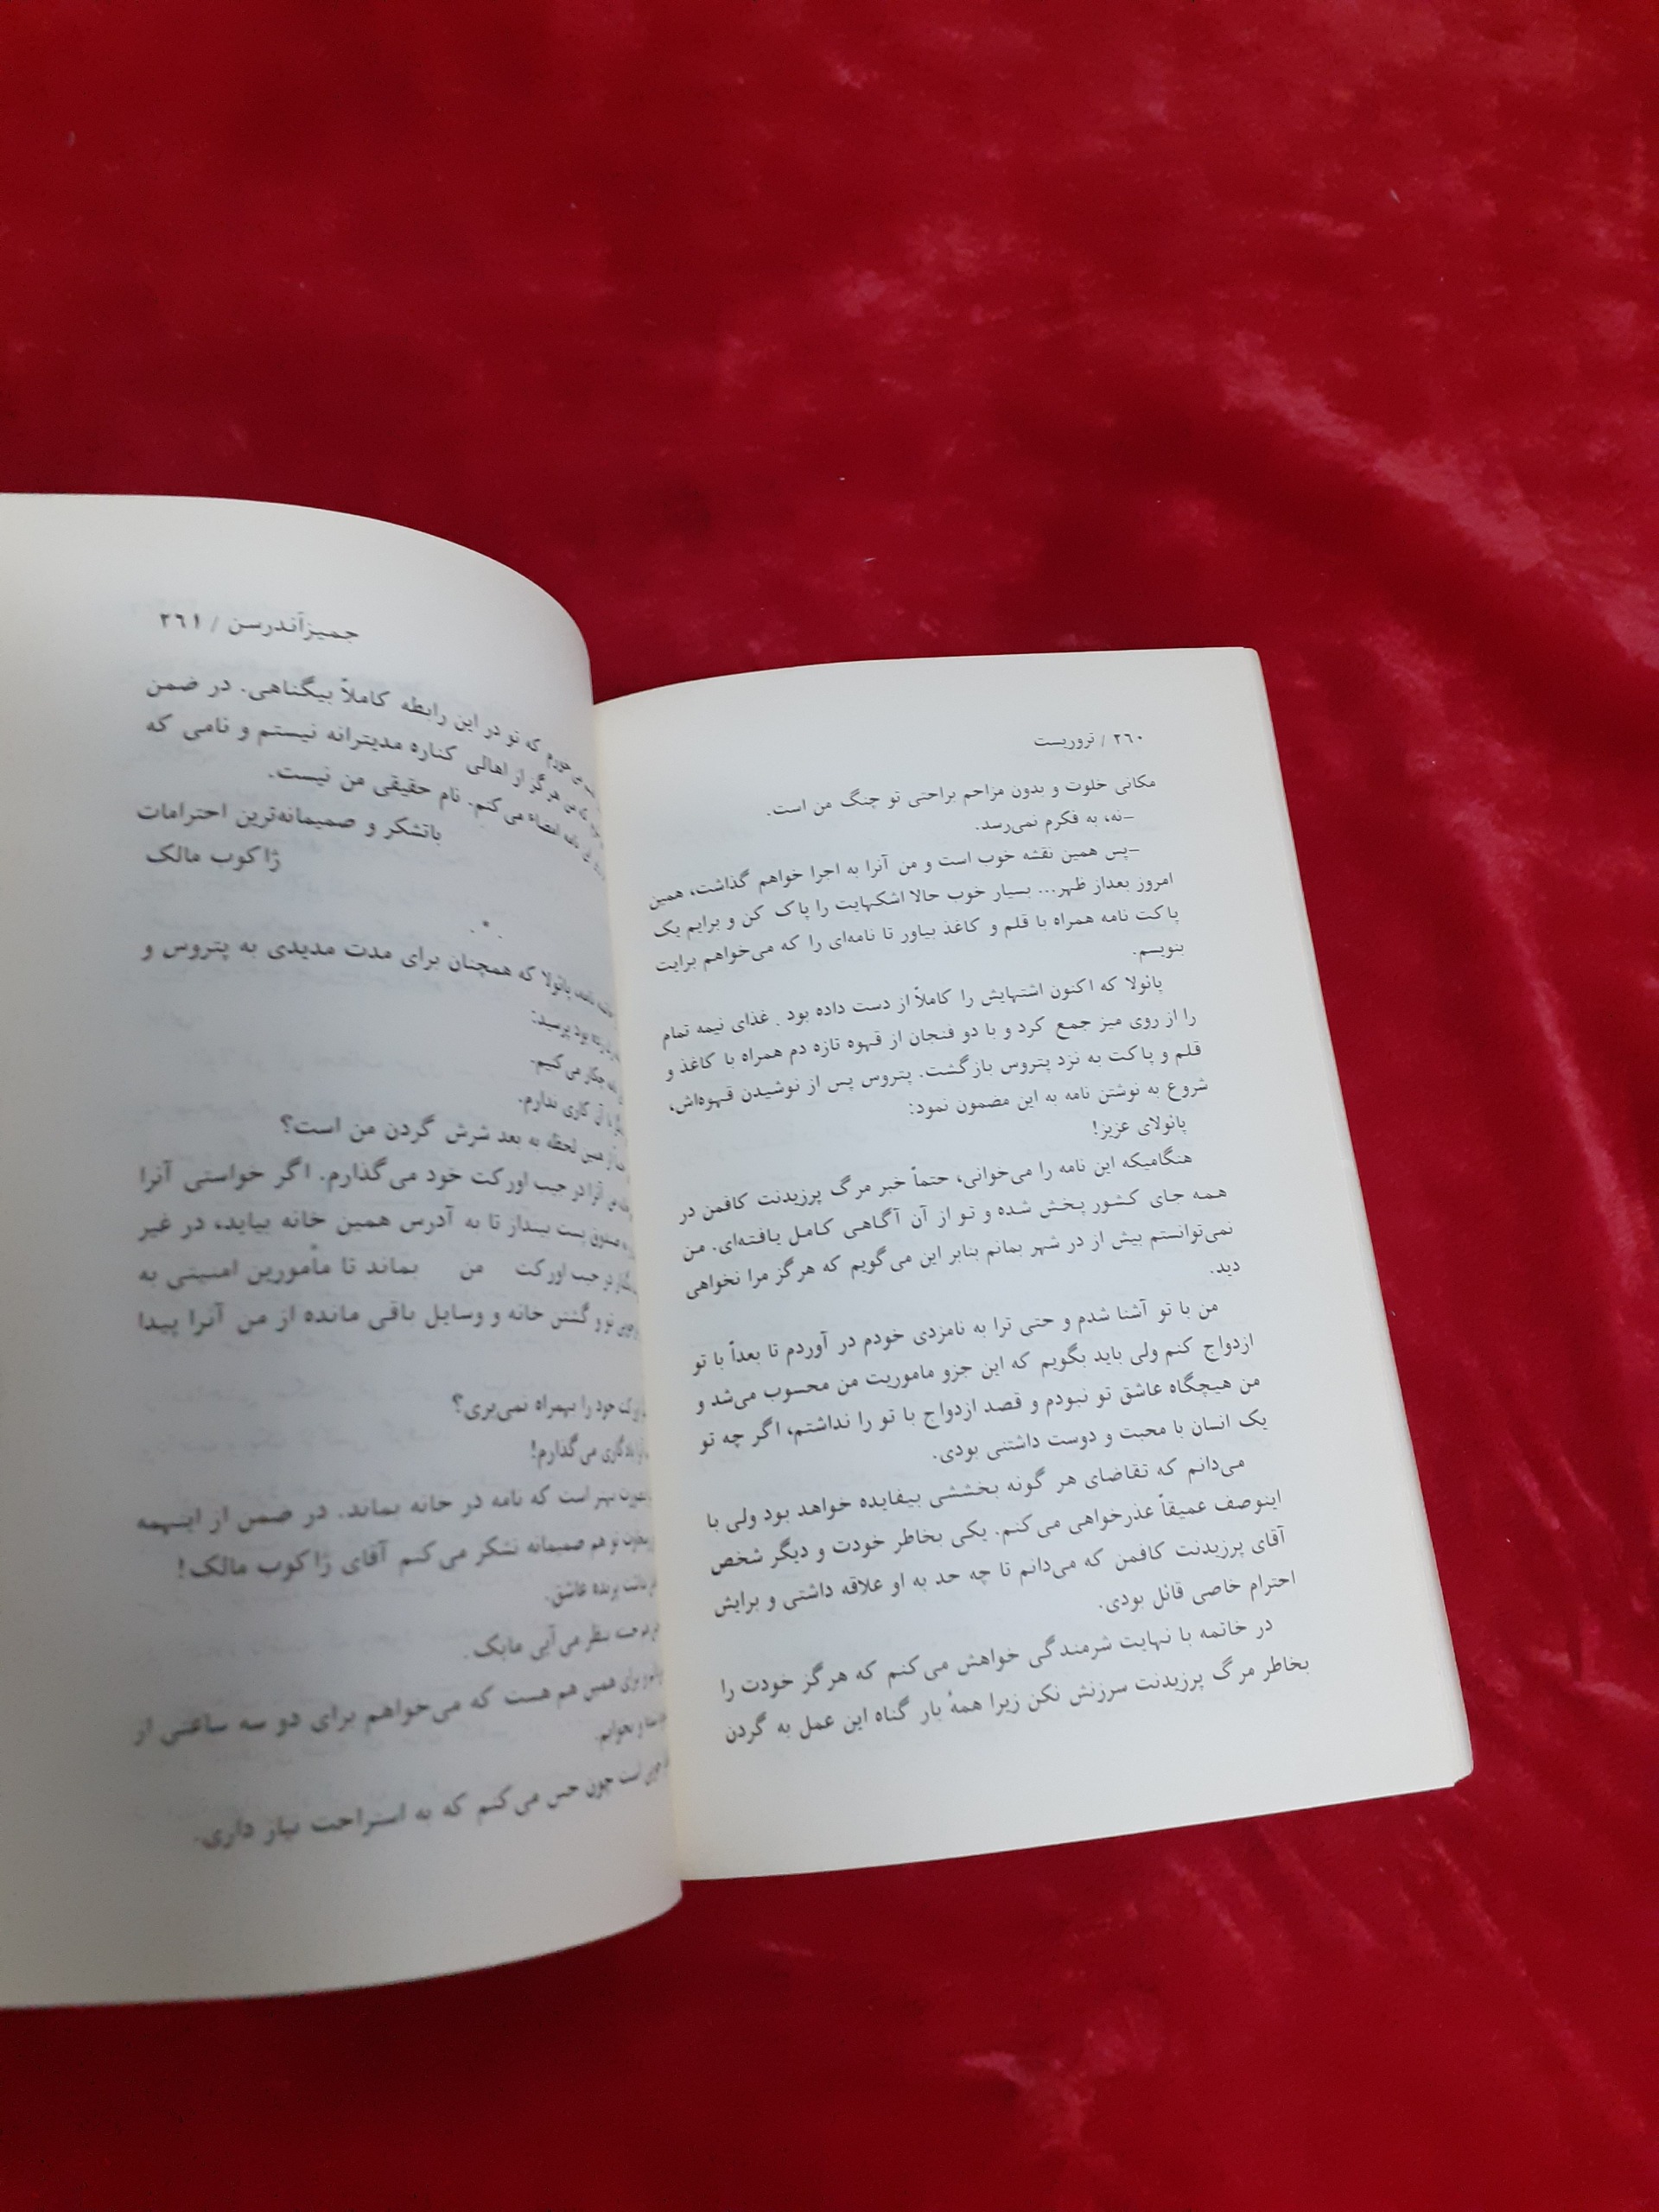 ٢٦٠ / تروریست
مکانی خلوت و بدون مزاحم براحتی تو چنگ من است.
–نه، به فکرم نمی‌رسد.
–پس همین نقشه خوب است و من آنرا به اجرا خواهم گذاشت، همین
امروز بعداز ظهر... بسیار خوب حالا اشکهایت را پاک کن و برایم یک
پاکت نامه همراه با قلم و کاغذ بیاور تا نامه‌ای را که می‌خواهم برایت
بنویسم.
پائولا که اکنون اشتهایش را کاملاً از دست داده بود . غذای نیمه تمام
را از روی میز جمع کرد و با دو فنجان از قهوه تازه دم همراه با کاغذ و
قلم و پاکت به نزد پتروس بازگشت. پتروس پس از نوشیدن قهوه‌اش،
شروع به نوشتن نامه به این مضمون نمود:
پائولای عزیز!
هنگامیکه این نامه را می‌خوانی، حتماً خبر مرگ پرزیدنت کافمن در
همه جای کشور پخش شده و تو از آن آگاهی کامل یافته‌ای. من
نمی‌توانستم بیش از در شهر بمانم بنابر این می‌گویم که هرگز مرا نخواهی
دید.
من با تو آشنا شدم و حتی ترا به نامزدی خودم در آوردم تا بعداً با تو
ازدواج کنم ولی باید بگویم که این جزو ماموریت من محسوب می‌شد و
من هیچگاه عاشق تو نبودم و قصد ازدواج با تو را نداشتم، اگر چه تو
یک انسان با محبت و دوست داشتنی بودی.
می‌دانم که تقاضای هر گونه بخششی بیفایده خواهد بود ولی با
اینوصف عمیقاً عذرخواهی می‌کنم. یکی بخاطر خودت و دیگر شخص
آقای پرزیدنت کافمن که می‌دانم تا چه حد به او علاقه داشتی و برایش
احترام خاصی قائل بودی.
در خاتمه با نهایت شرمندگی خواهش می‌کنم که هرگز خودت را
بخاطر مرگ پرزیدنت سرزنش نکن زیرا همهٔ بار گناه این عمل به گردن
جمیزآندرسن / ٢٦١
می‌خورم که تو در این رابطه کاملاً بیگناهی. در ضمن
که من هرگز از اهالی کناره مدیترانه نیستم و نامی که
نامه امضاء می‌کنم. نام حقیقی من نیست.
باتشکر و صمیمانه‌ترین احترامات
ژاکوب مالک
. * .
نامه، پائولا که همچنان برای مدت مدیدی به پتروس و
بود پرسید:
چکار می‌کنیم.
با آن کاری ندارم.
از همین لحظه به بعد شرش گردن من است؟
من آنرا در جیب اورکت خود می‌گذارم. اگر خواستی آنرا
صندوق پست بینداز تا به آدرس همین خانه بیاید، در غیر
در جیب اورکت من بماند تا مأمورین امنیتی به
تو و گشتن خانه و وسایل باقی مانده از من آنرا پیدا
خود را بهمراه نمی‌بری؟
یادگاری می‌گذارم!
بهتر است که نامه در خانه بماند. در ضمن از اینهمه
تو هم صمیمانه تشکر می‌کنم آقای ژاکوب مالک!
پرنده عاشق.
بنظر می‌آیی مایک.
برای همین هم هست که می‌خواهم برای دو سه ساعتی از
و بخوابم.
است چون حس می‌کنم که به استراحت نیاز داری.